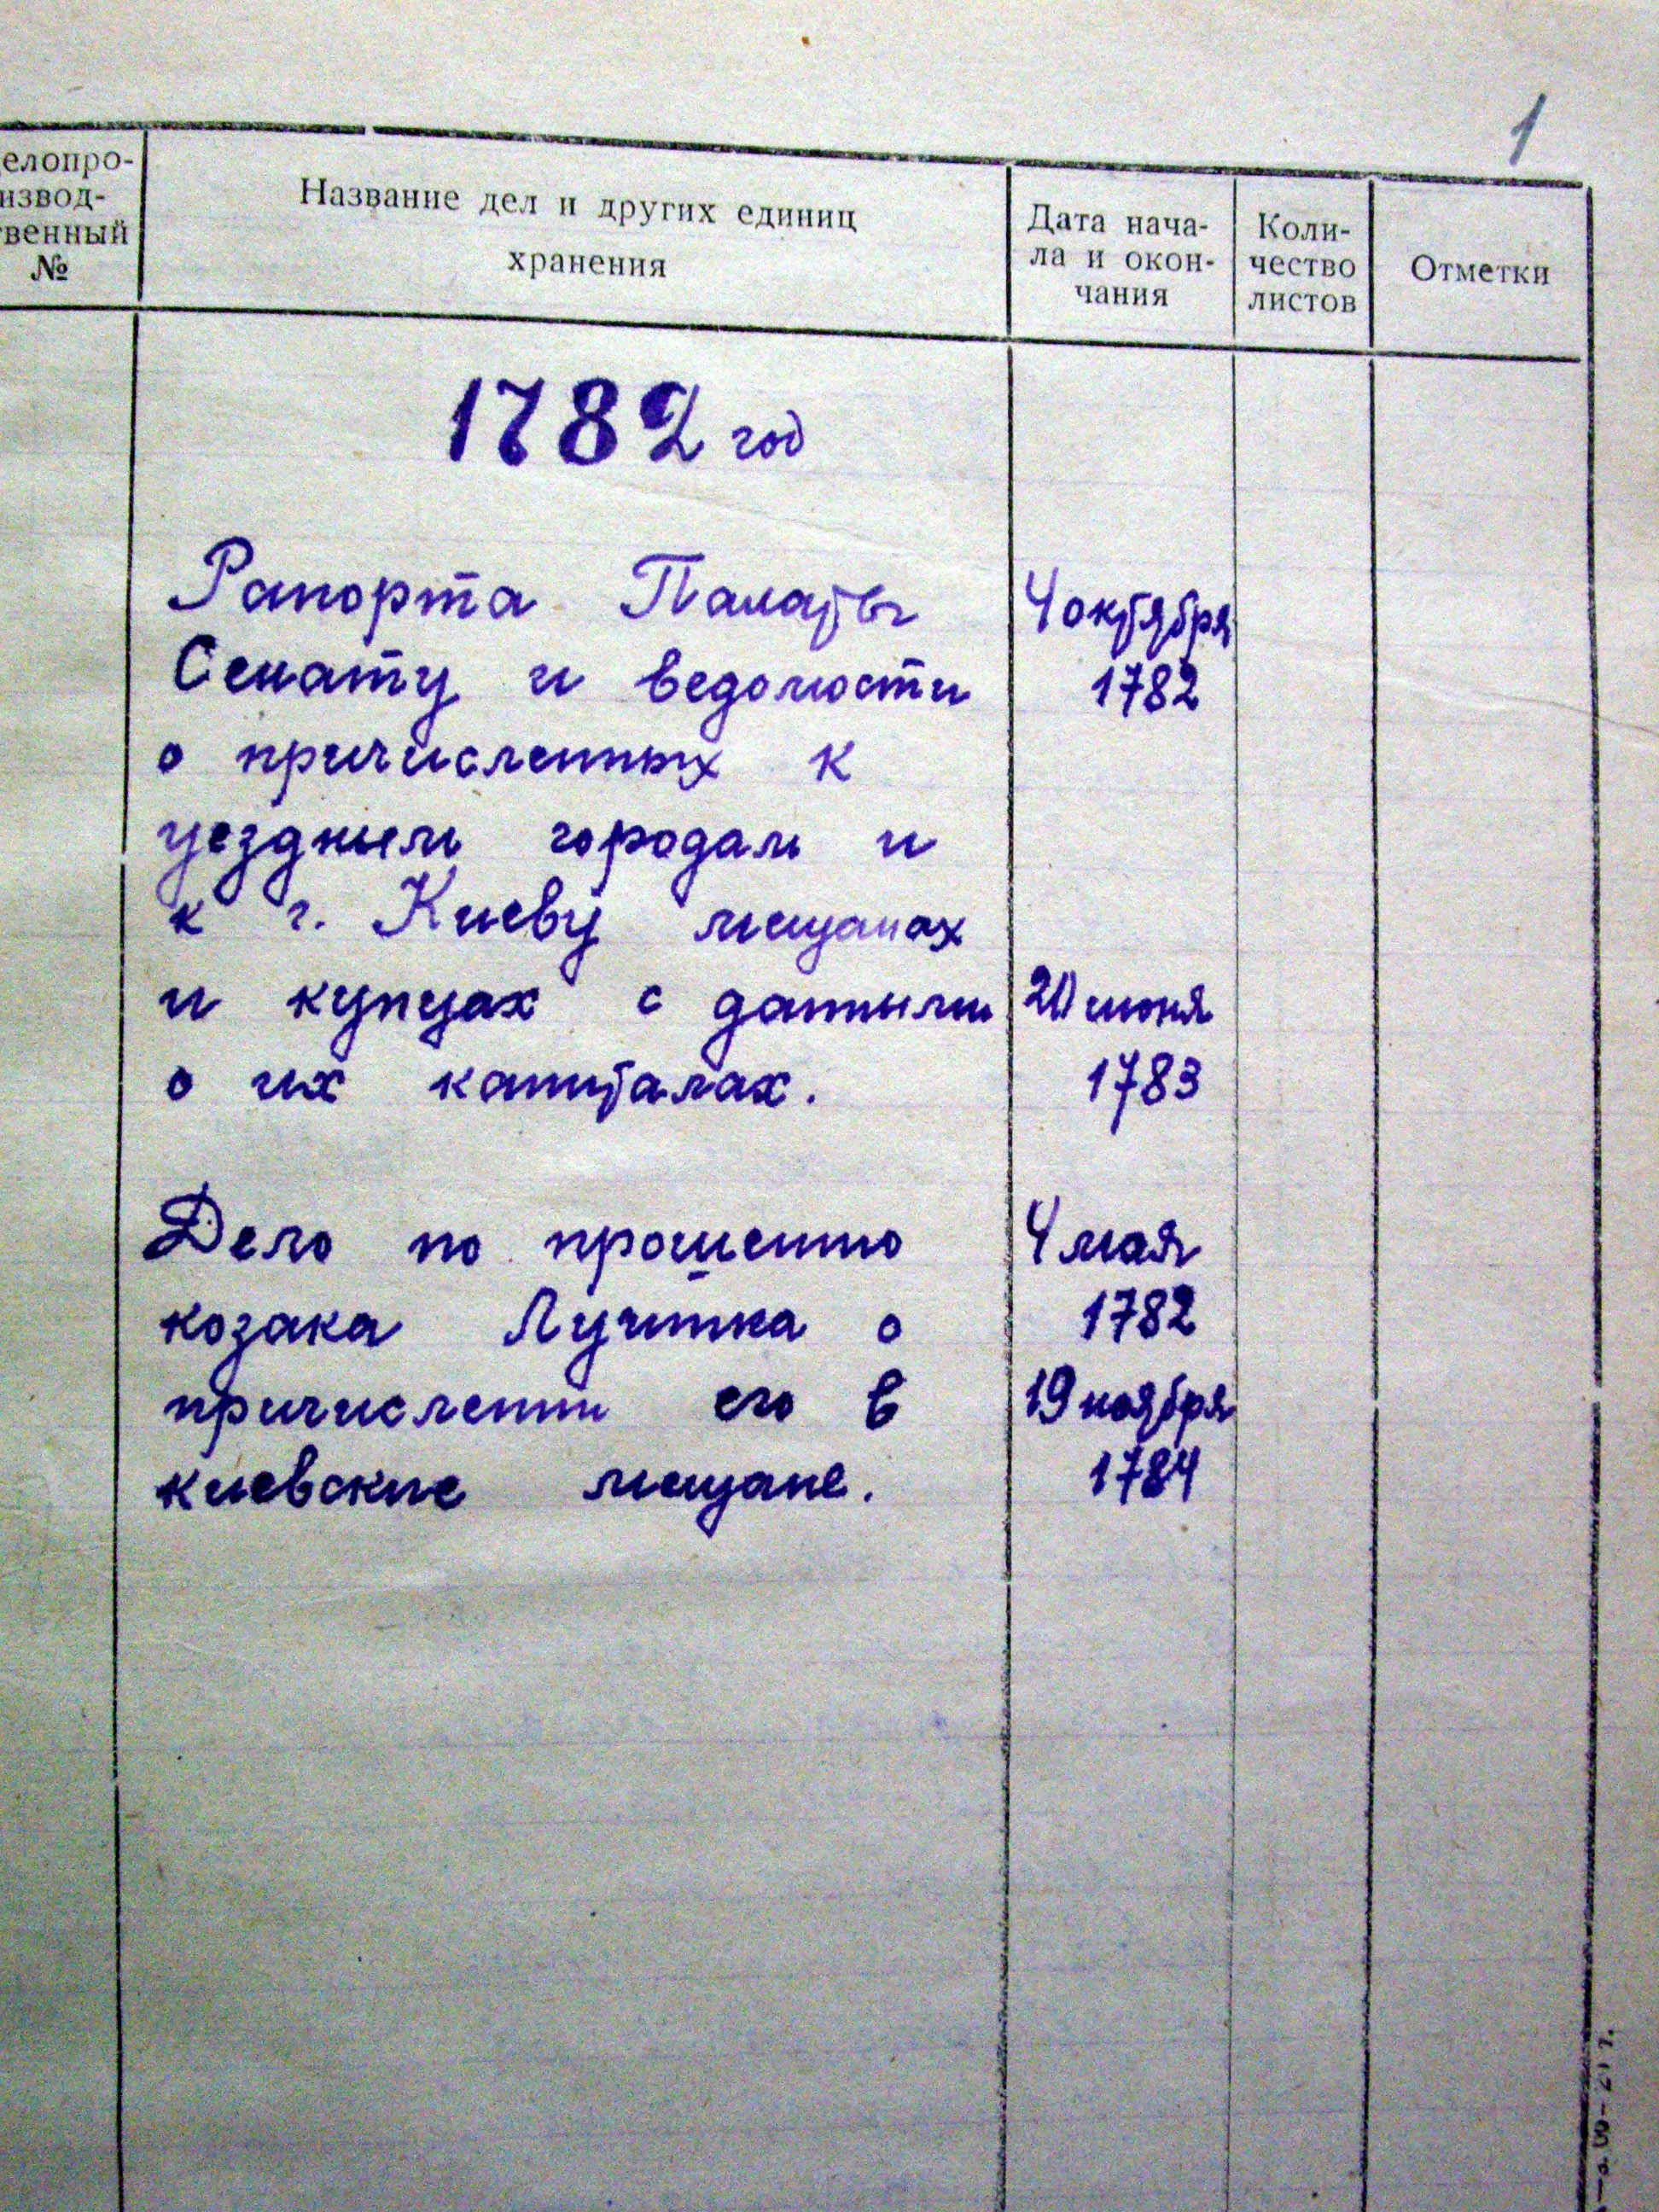 1
елопро-
извод-
венный
№
Название дел и других единиц
хранения
Дата нача-
ла и окон-
чания
Коли-
чество
листов
Отметки
1782 год
Рапорта Палаты
Сенату и ведомости
о причисленных к
уездным городам и
к г. Киеву мещанах
и купцах с данными
о их капиталах.
4 октября
1782
20 июня
1783
Дело по прошению
козака Лучинка о
причислении его в
киевские мещане.
4 мая
1782
19 ноября
1784